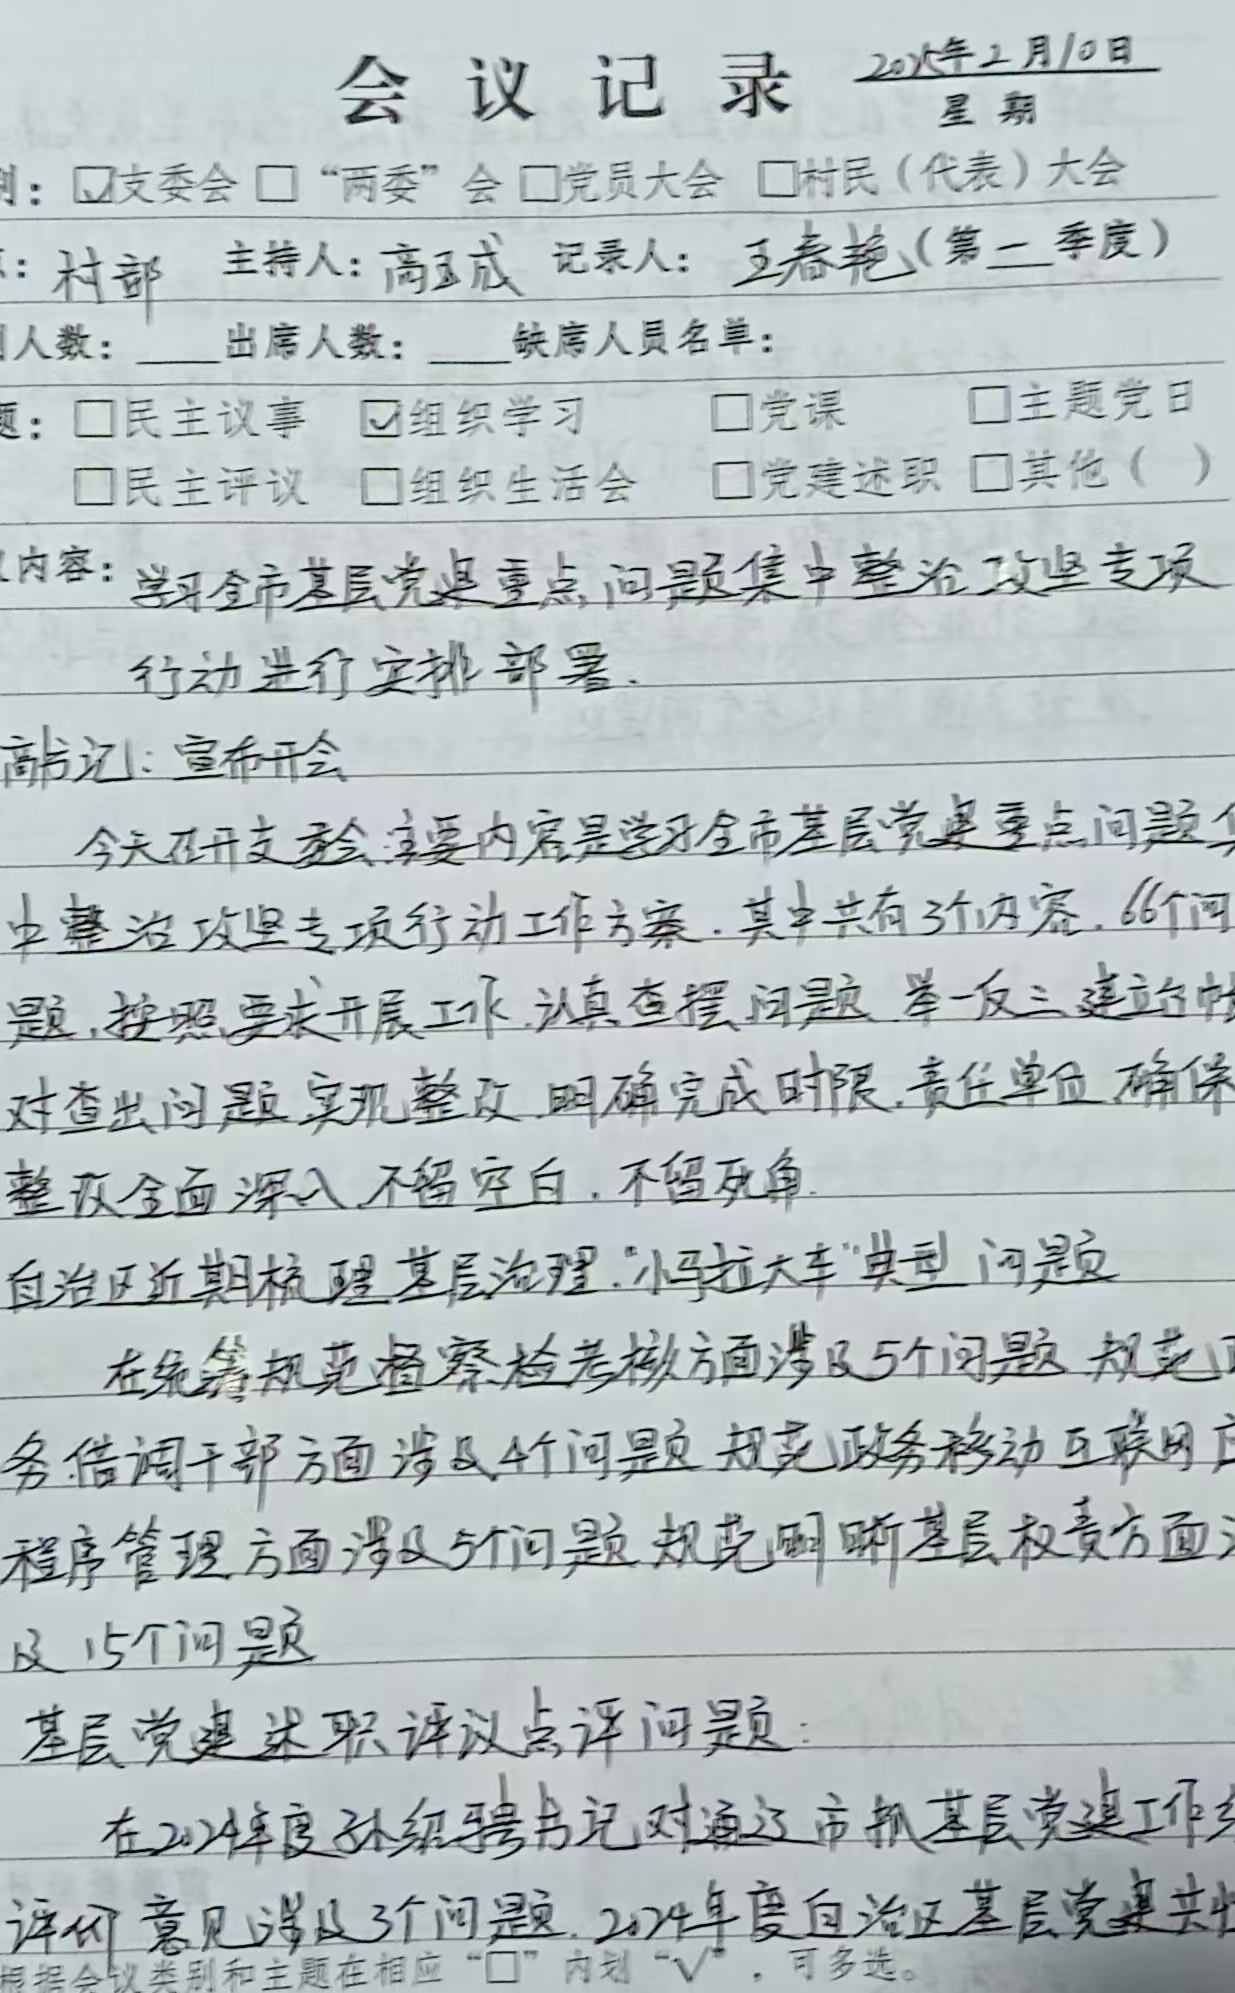 会议记录 2025年2月10日
星期
别：☑支委会 □“两委”会 □党员大会 □村民（代表）大会
：村部 主持人：高玉成 记录人：王春艳（第__季度）
人数：____出席人数：____缺席人员名单：
题：□民主议事 ☑组织学习 □党课 □主题党日
□民主评议 □组织生活会 □党建述职 □其他（ ）
内容：学习全市基层党建重点问题集中整治攻坚专项
行动进行安排部署.
高书记：宣布开会
今天召开支委会,主要内容是学习全市基层党建重点问题集
中整治攻坚专项行动工作方案.其中共有3个内容.66个问
题,按照要求开展工作,认真查摆问题 举一反三建立台帐
对查出问题实现整改 明确完成时限.责任单位 确保
整改全面深入,不留空白.不留死角.
自治区近期梳理基层治理“小马拉大车”典型问题
在统筹规范督察检考核方面涉及5个问题 规范
务借调干部方面涉及4个问题 规范政务移动互联网应
程序管理方面涉及5个问题 规范明晰基层权责方面涉
及15个问题
基层党建述职评议点评问题:
在2024年度孙绍骋书记对通辽市抓基层党建工作
评价意见涉及3个问题.2024年度自治区基层党建共性
根据会议类别和主题在相应“□”内划“√”，可多选。